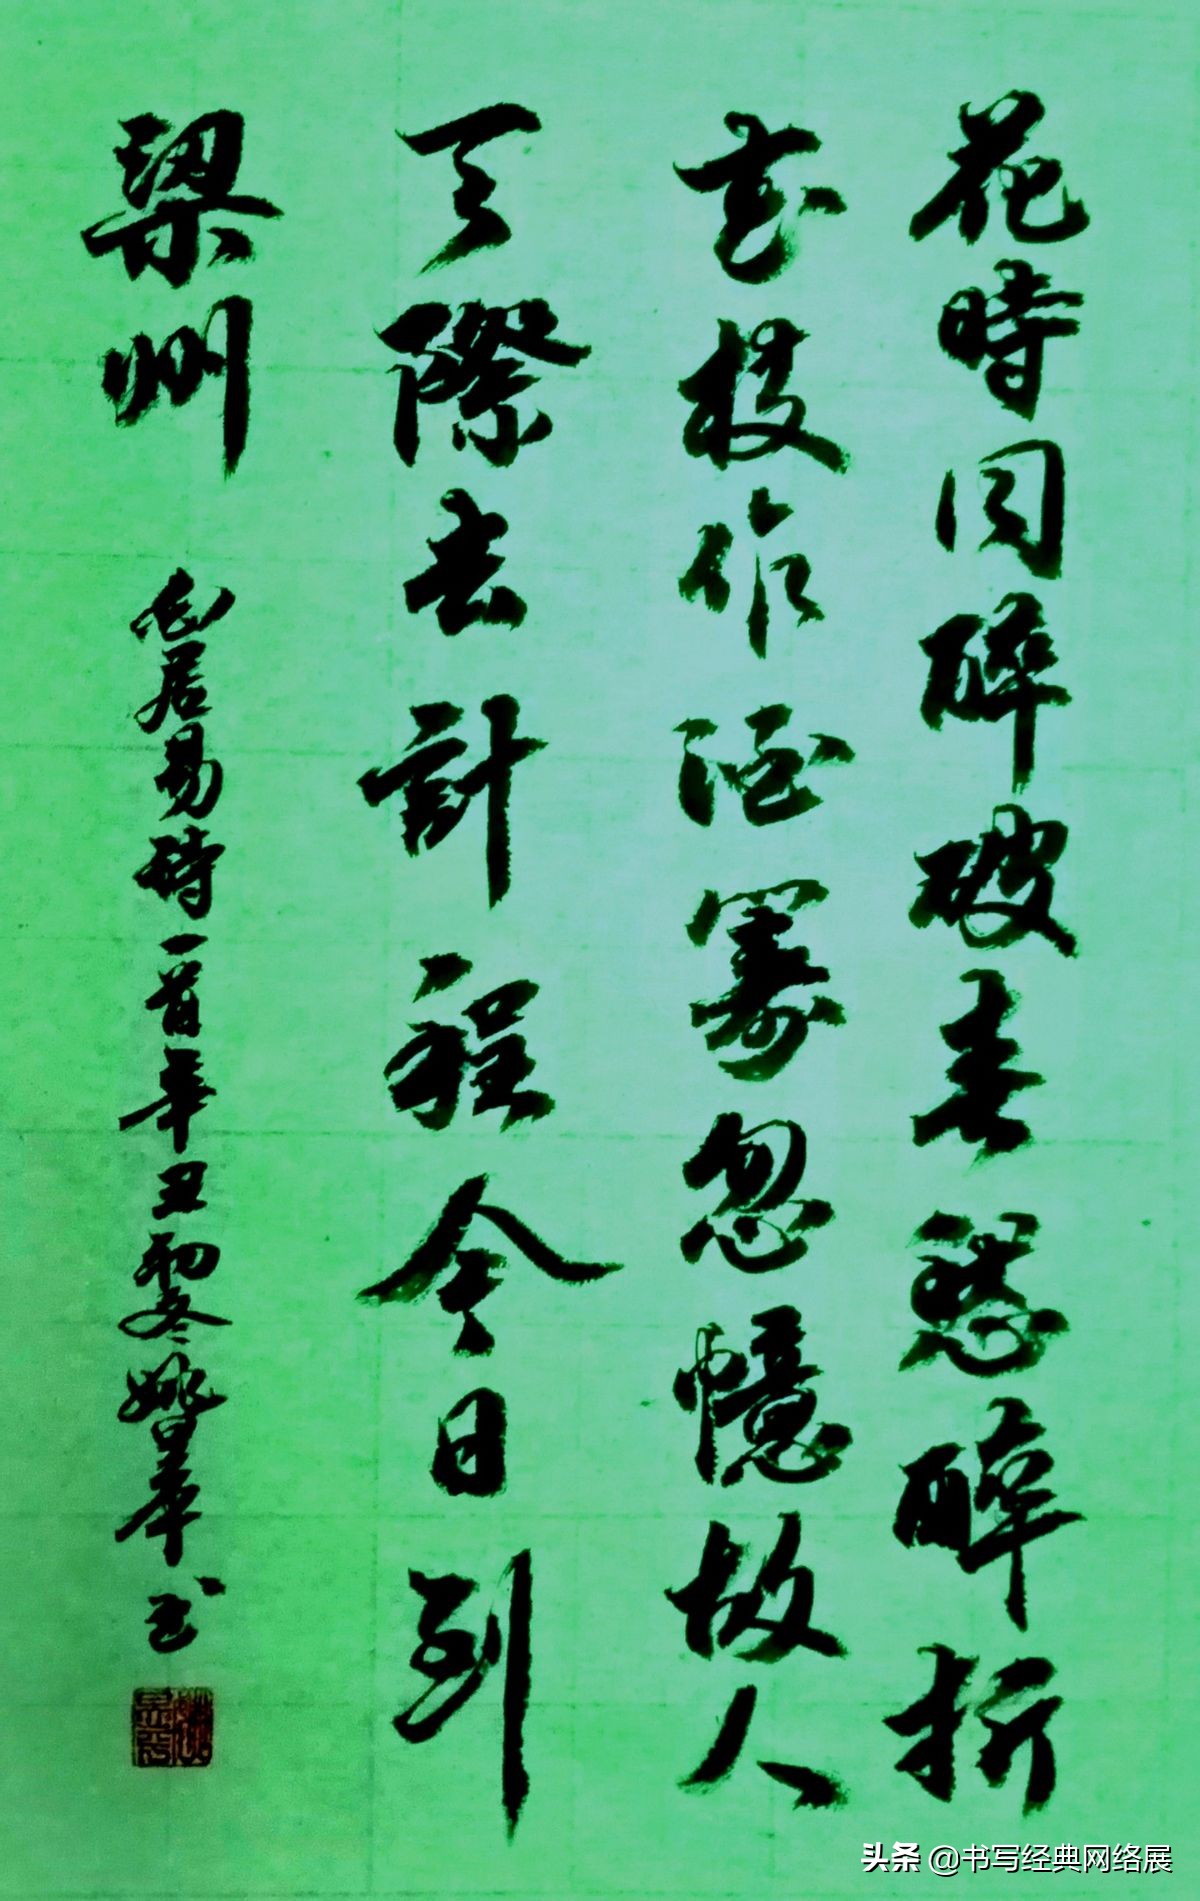 花時同醉破春愁醉折
花枝作酒籌忽憶故人
天際去計程今日到
梁州
白居易詩一首辛丑初冬姚書
头条 @书写经典网络展